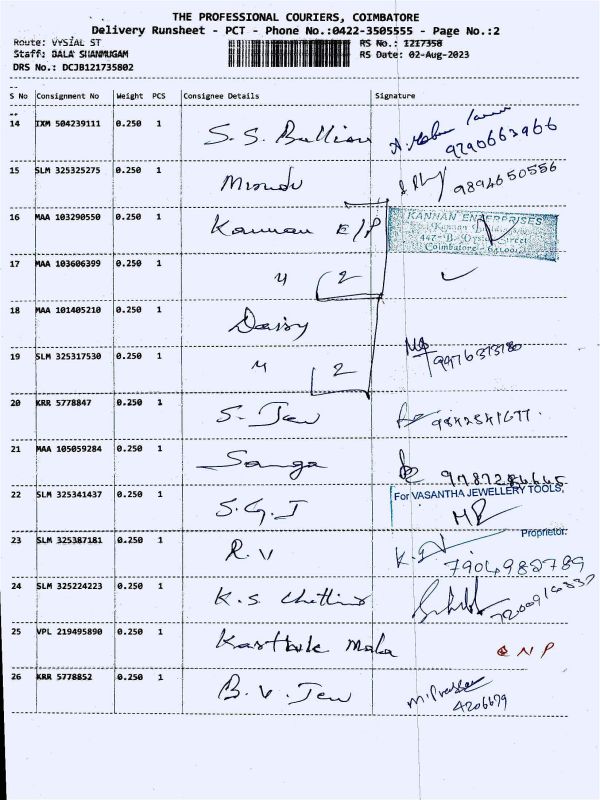 THE PROFESSIONAL COURIERS, COIMBATORE
Delivery Runsheet - PCT - Phone No.:0422-3505555 - Page No.:2
Route: VYSIAL ST RS No.: 1217358
Staff: BALA SHANMUGAM RS Date: 02-Aug-2023
DRS No.: DCJB121735802
S No Consignment No Weight PCS Consignee Details Signature
14 IXM 504239111 0.250 1 S. S. Bullion
15 SLM 325325275 0.250 1 9894650556
16 MAA 103290550 0.250 1 Kannan E/P KANNAN ENTERPRISES
Coimbatore
17 MAA 103606399 0.250 1 " 2
18 MAA 101405210 0.250 1 Daisy
19 SLM 325317530 0.250 1 " 2
20 KRR 5778847 0.250 1 S. Jew
21 MAA 105059284 0.250 1 Sanga
22 SLM 325341437 0.250 1 S.G.J For VASANTHA JEWELLERY TOOLS,
Proprietor.
23 SLM 325387181 0.250 1 R.V 7904982789
24 SLM 325224223 0.250 1 K.S.
25 VPL 219495890 0.250 1 Mala N P
26 KRR 5778852 0.250 1 B.V. Jew 4206679